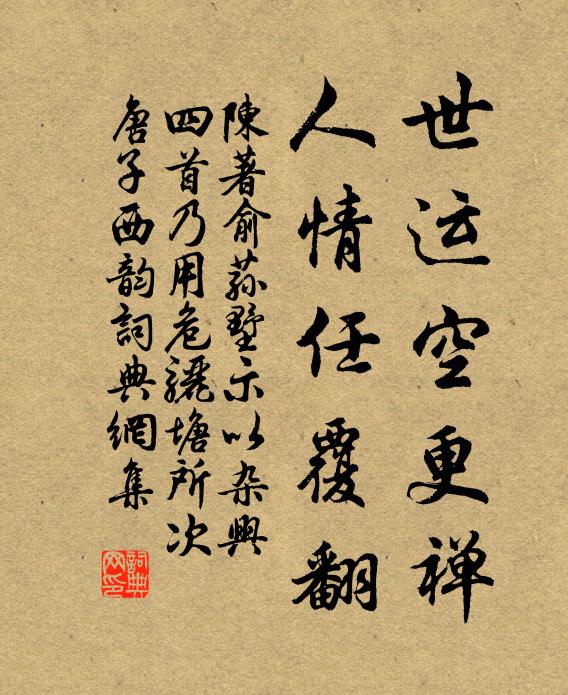 世运空更禅
人情任覆翻
陳著俞荪墅示以杂興
四首乃用危骊塘所次
唐子西韵詞典網集
詞典网印